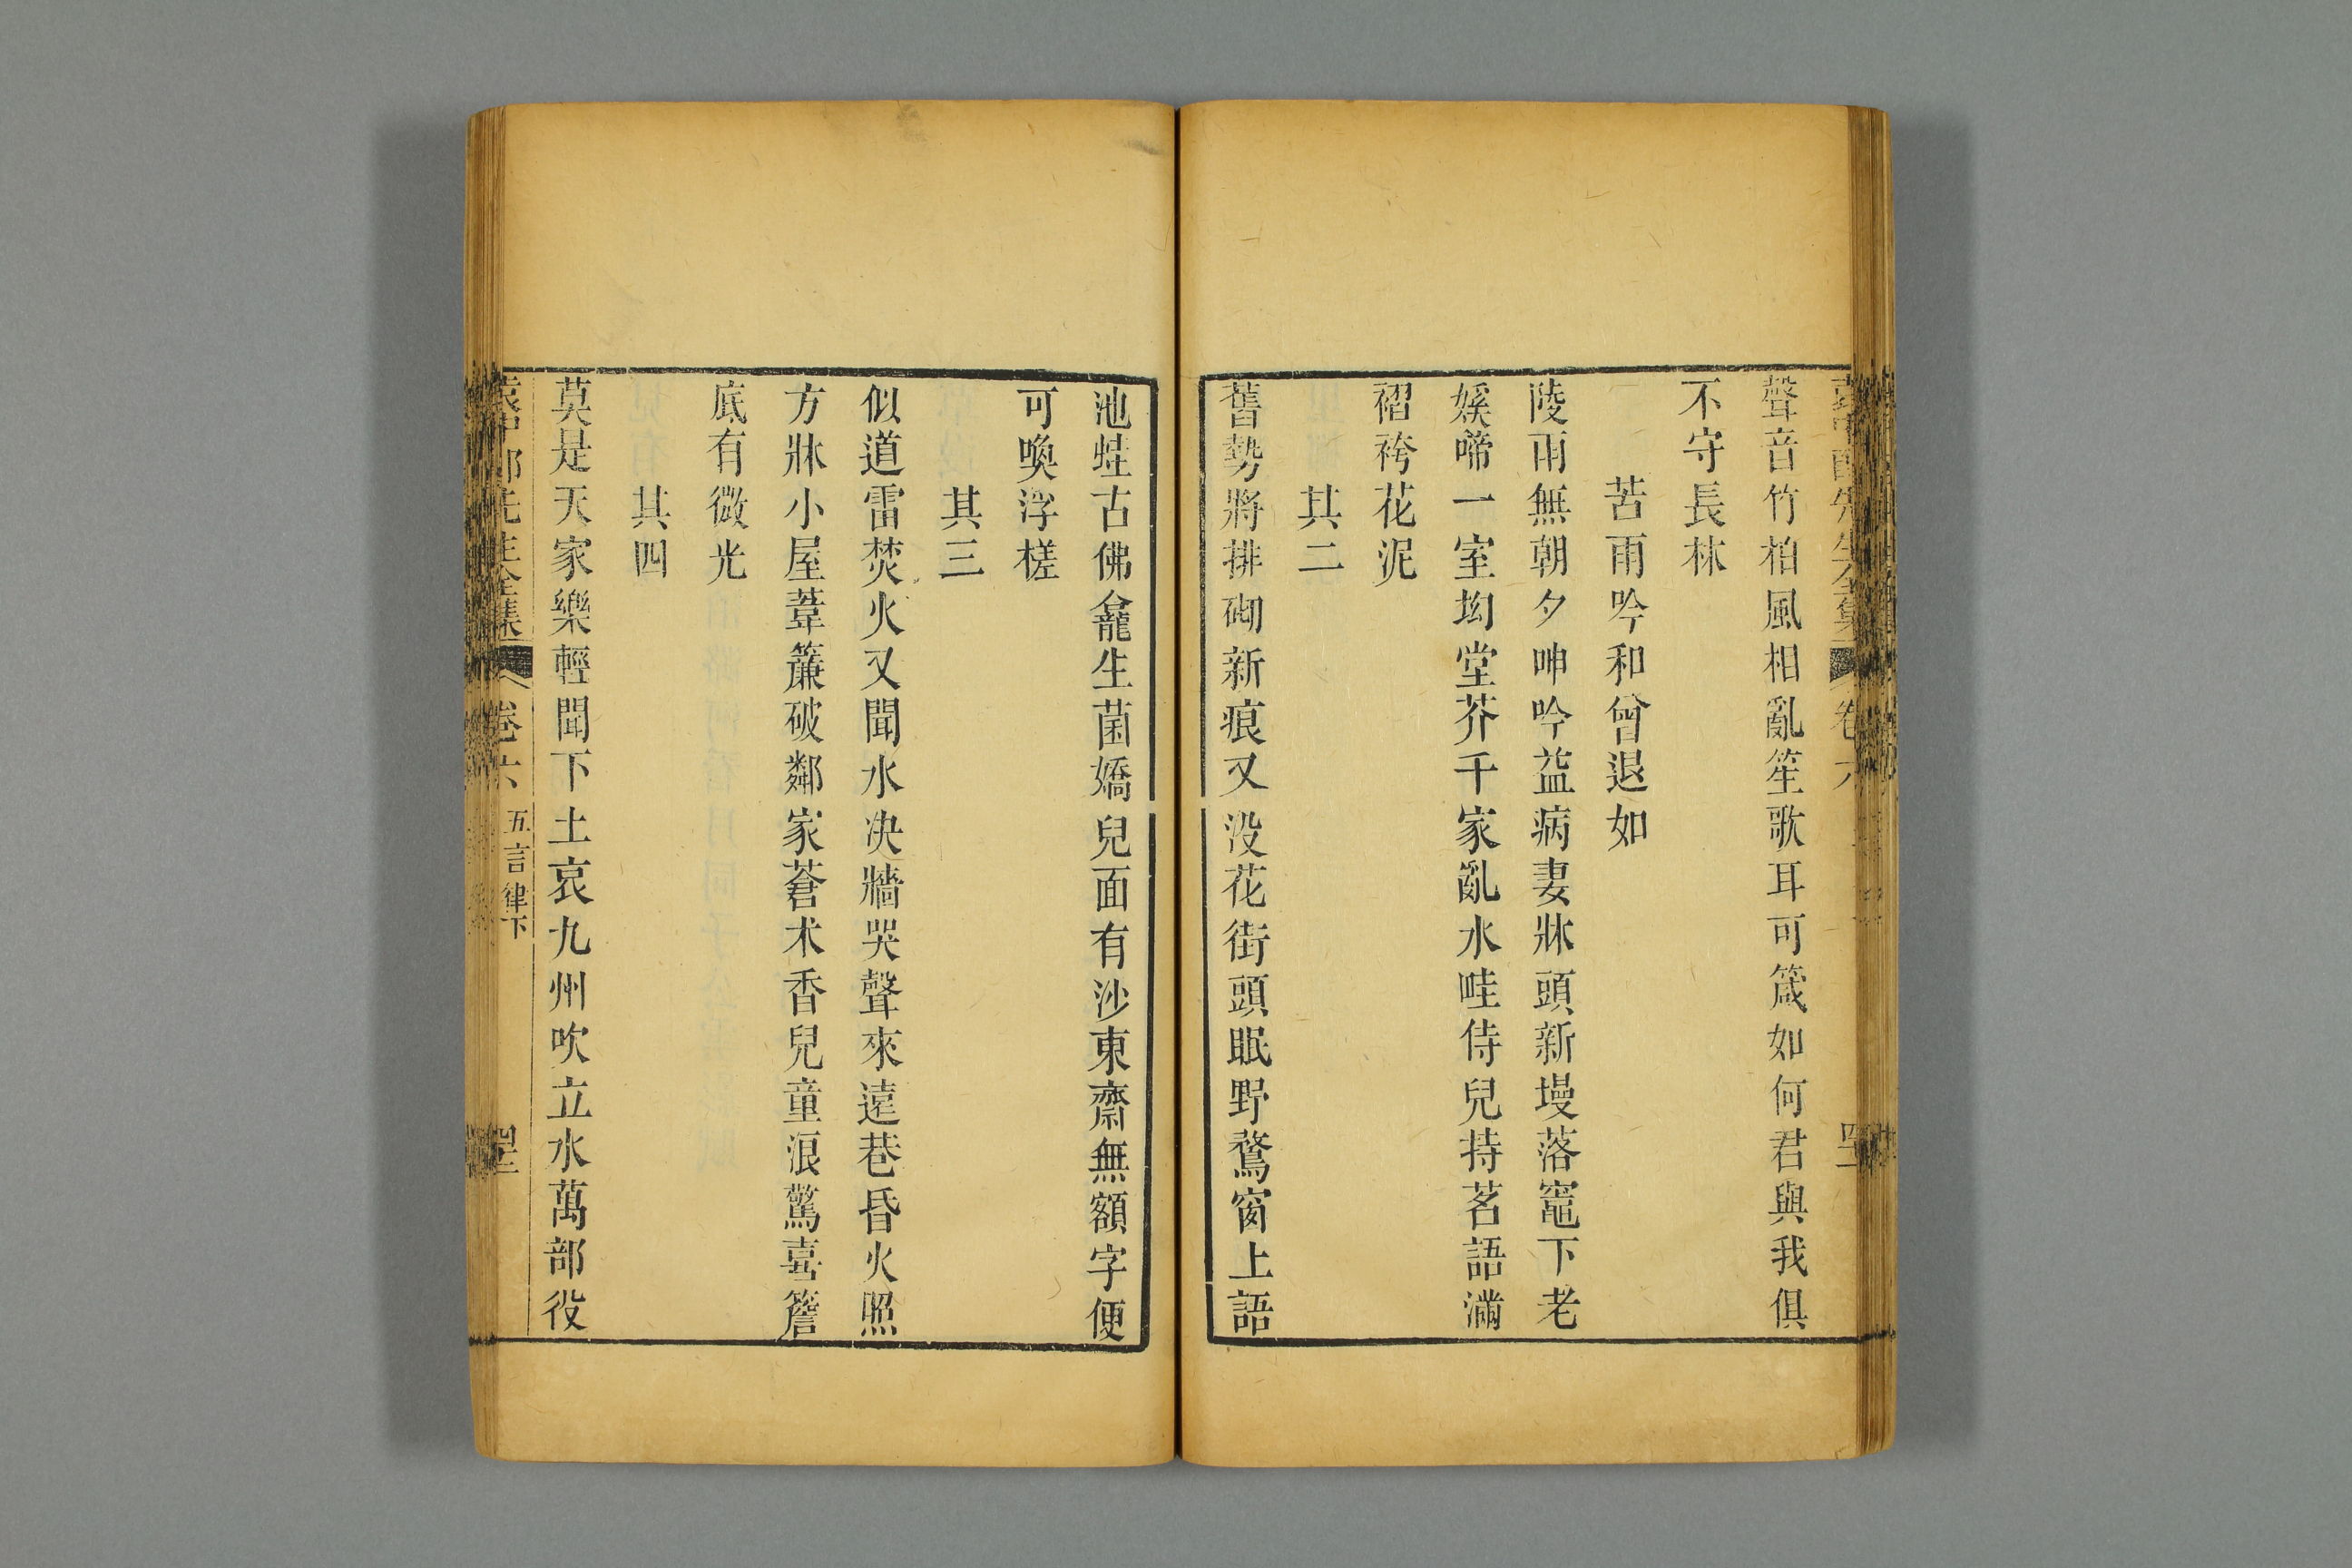 聲音竹柏風相亂笙歌耳可箴如何君與我俱
不守長林
苦雨吟和曾退如
陵雨無朝夕呻吟益病妻牀頭新墁落竈下老
媛啼一室坳堂芥千家亂水畦侍兒持茗語滿
褶袴花泥
其二
舊勢將排砌新痕又没花街頭眠野鶩窗上語
池蛙古佛龕生菌嬌兒面有沙東齋無額字便
可喚浮槎
其三
似道雷焚火又聞水决牆哭聲來遠巷昏火照
方牀小屋葦簾破鄰家蒼术香兒童浪驚喜簷
底有微光
其四
莫是天家樂輕聞下土哀九州吹立水萬部役
袁中郎先生全集 卷六 五言律下